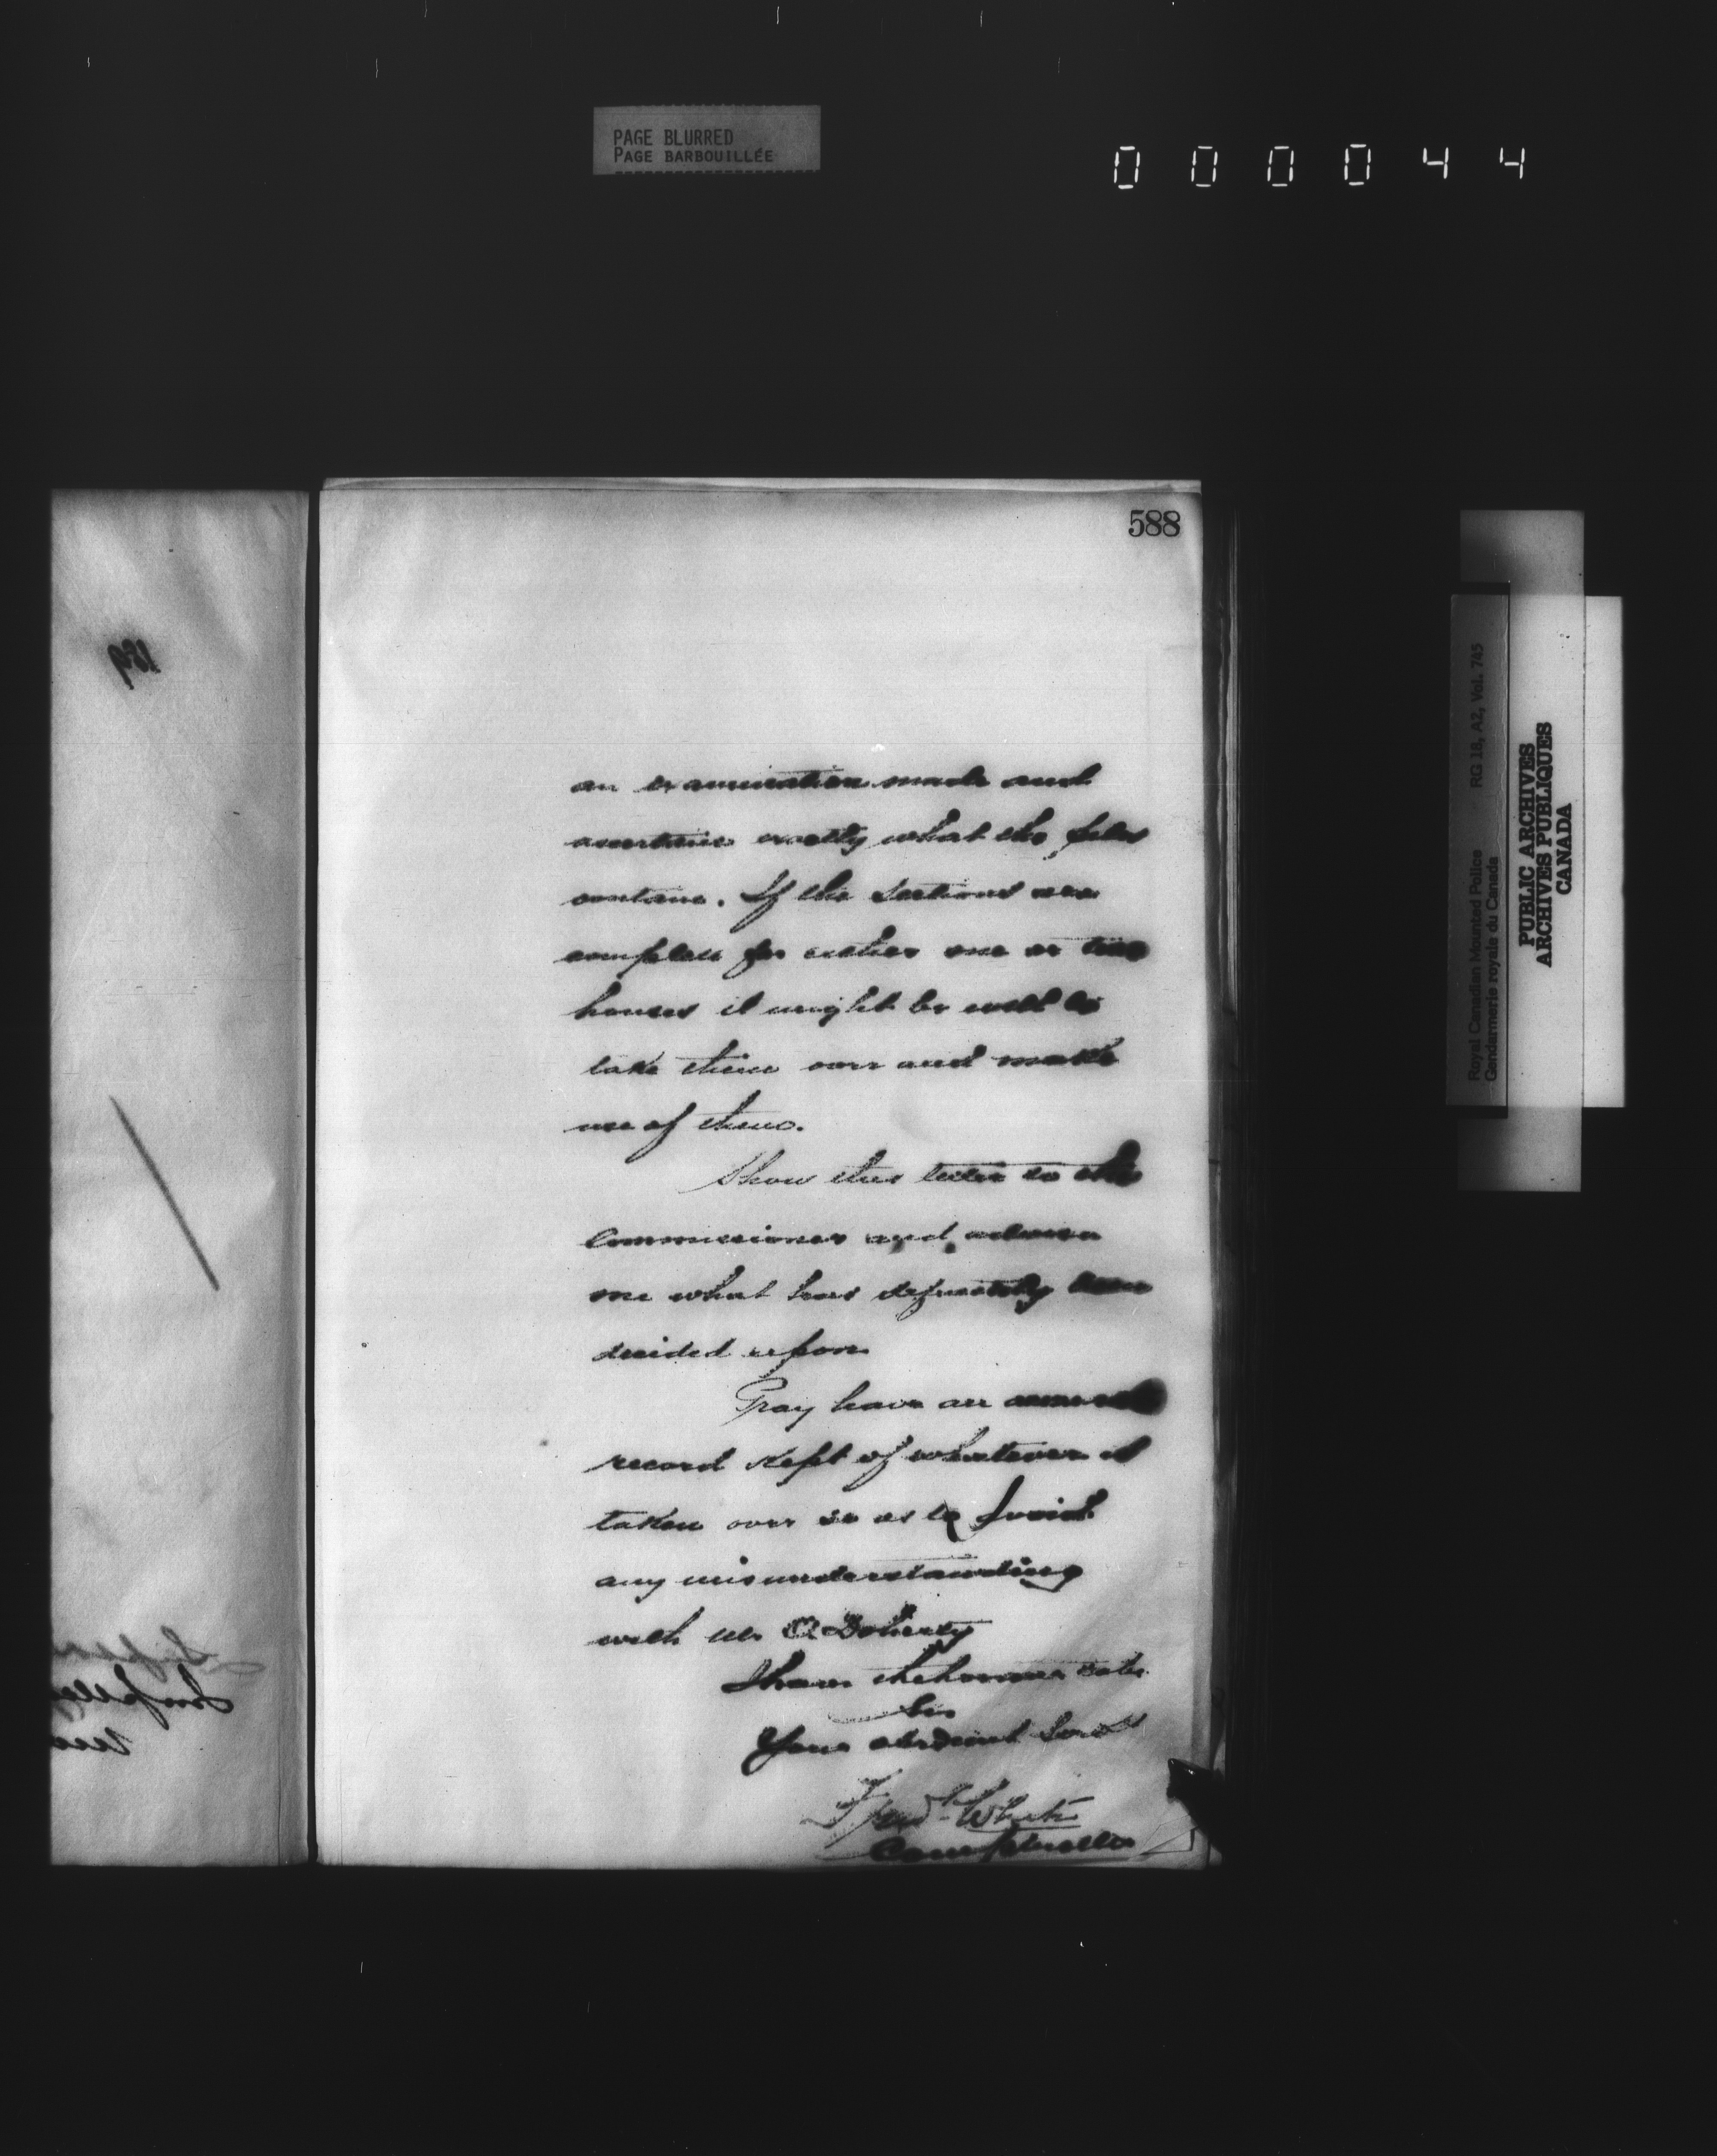 PAGE BLURRED
PAGE BARBOUILLÉE
000044
588
an examination made and
ascertain exactly what the piles
contain. If the sections are
complete for either one or two
houses it might be well to
take them over and make
use of them.
Show this letter to the
Commissioner and advise
me what has definitely been
decided upon
Pray have an accurate
record kept of whatever is
taken over so as to avoid
any misunderstanding
with Mr O'Doherty
I have the honour to be
Sir
Your obedient Servt
Fred White
Comptroller
Royal Canadian Mounted Police RG 18, A2, Vol. 745
Gendarmerie royale du Canada
PUBLIC ARCHIVES
ARCHIVES PUBLIQUES
CANADA